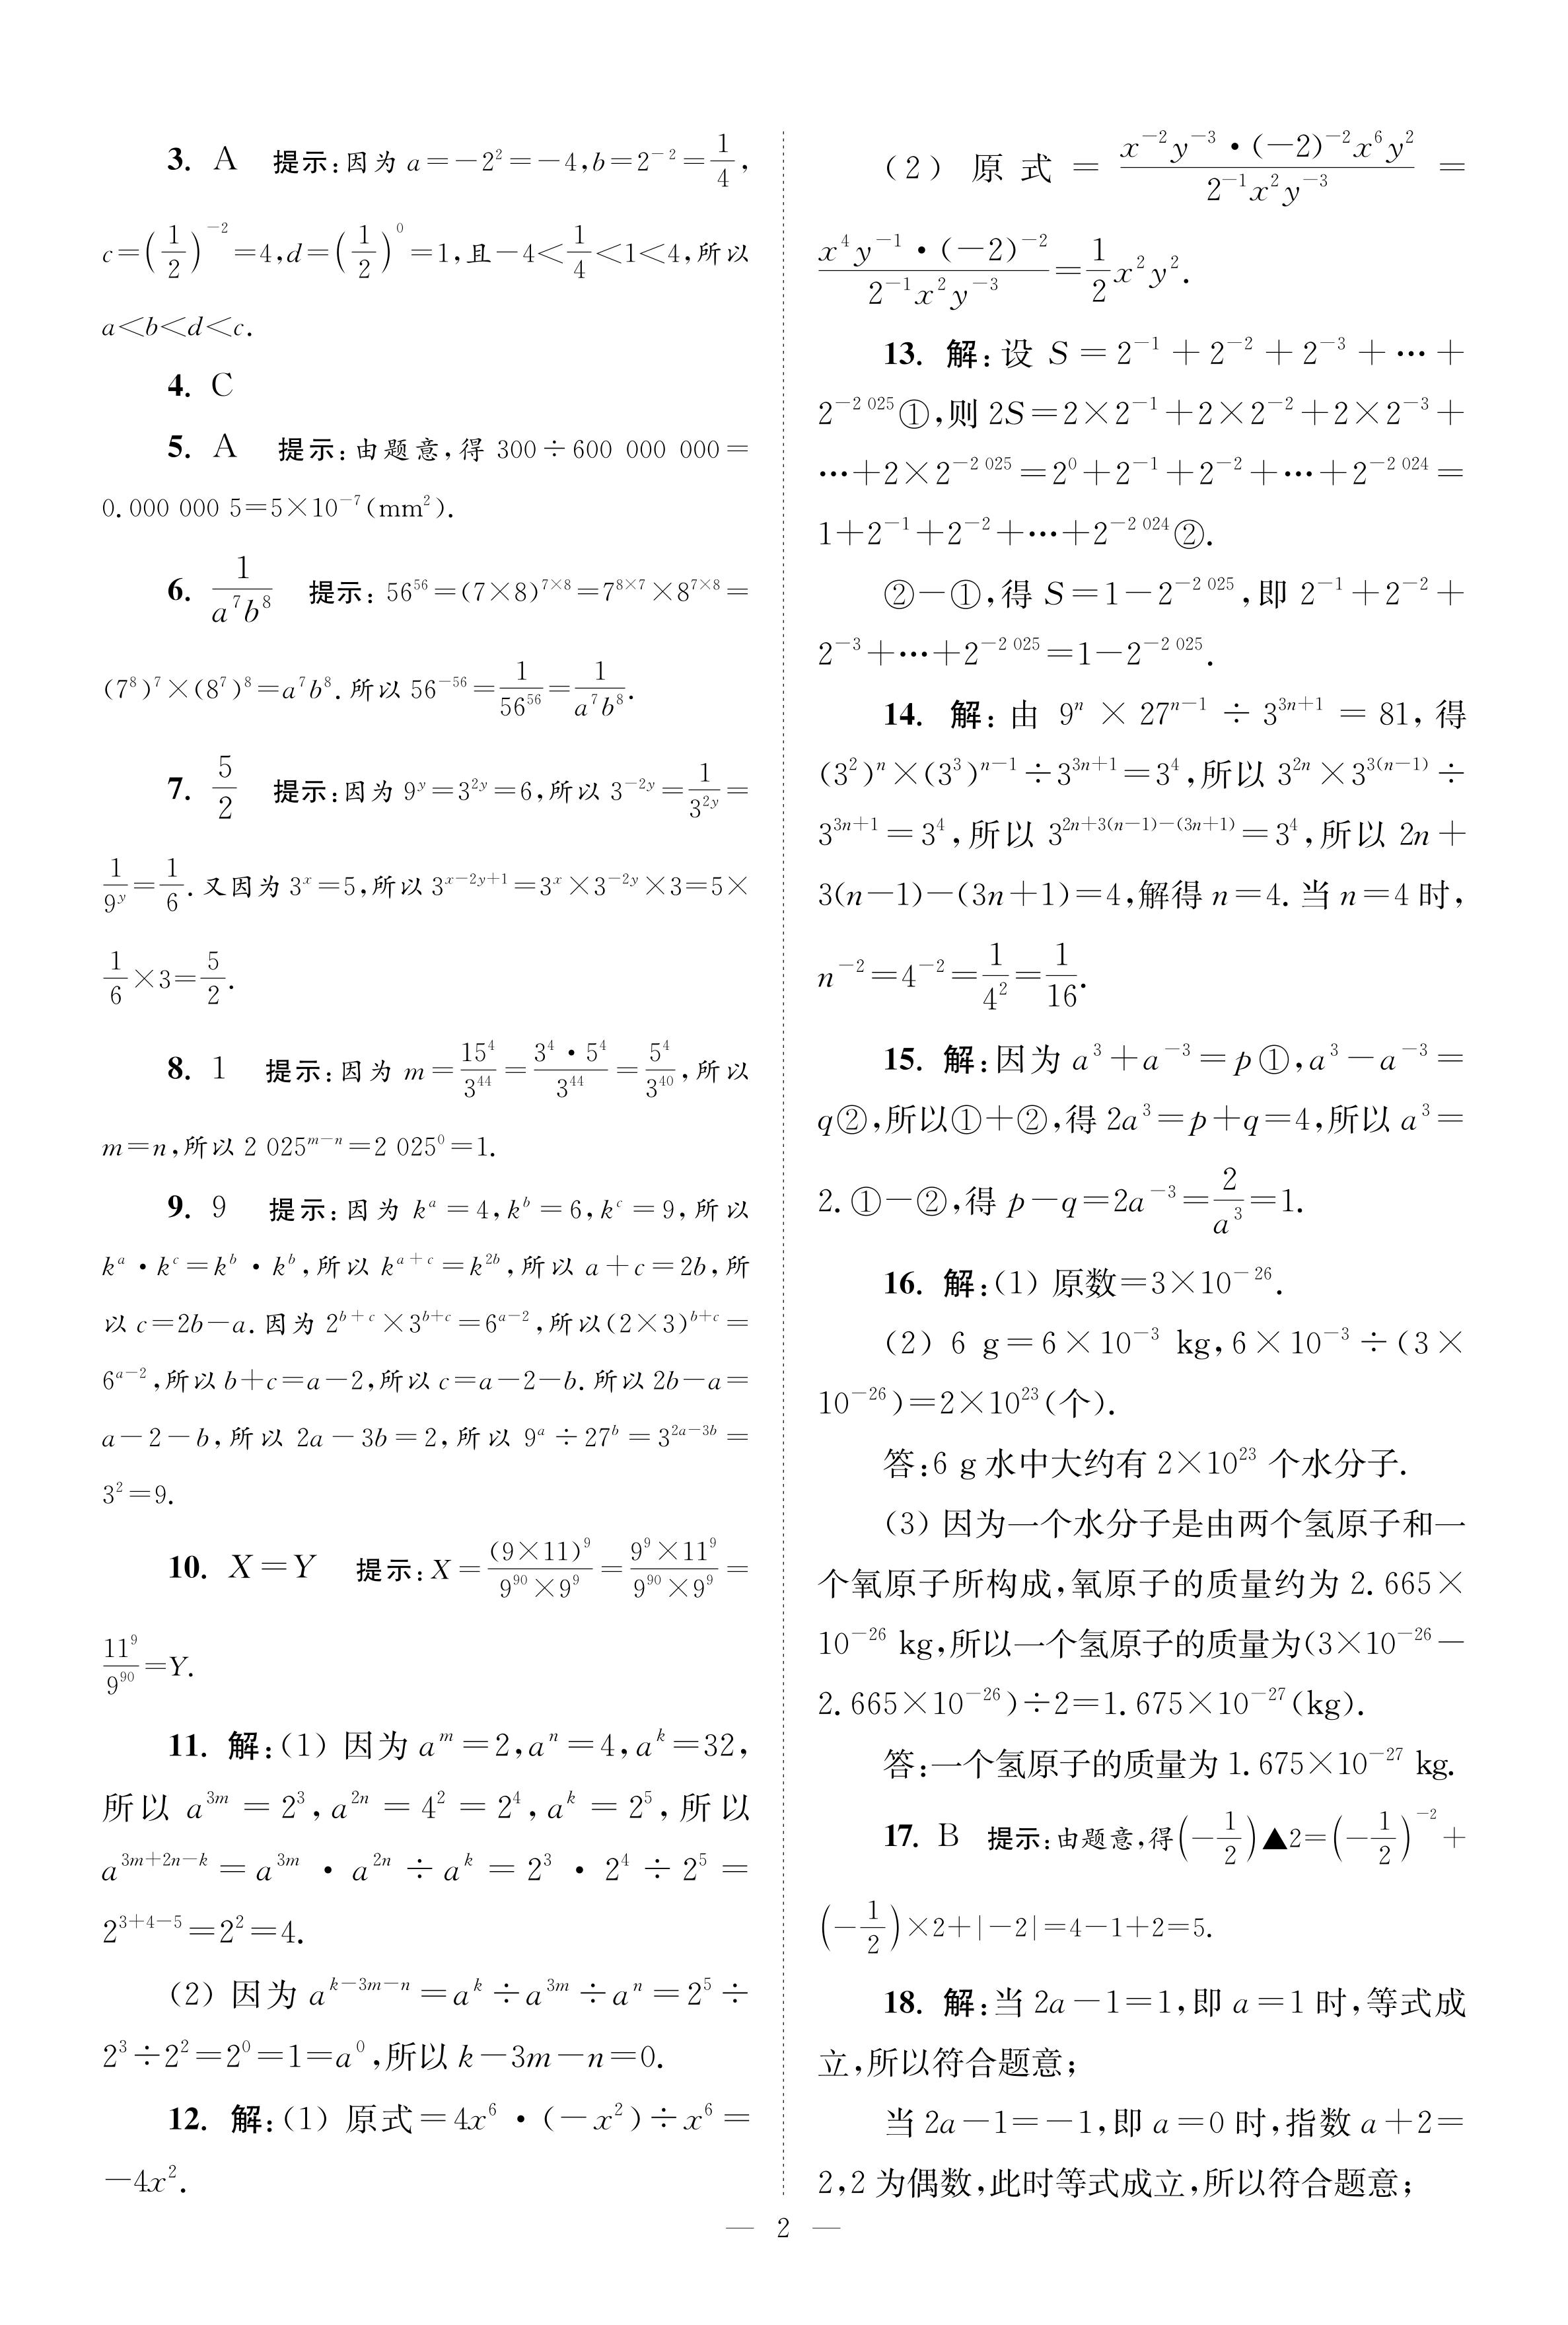 3. A 提示:因为 a=-2²=-4,b=2⁻²=1/4,
c=(1/2)⁻²=4,d=(1/2)⁰=1,且-4<1/4<1<4,所以
a<b<d<c.
4. C
5. A 提示:由题意,得 300÷600 000 000=
0.000 000 5=5×10⁻⁷(mm²).
6. 1/(a⁷b⁸) 提示:56⁵⁶=(7×8)^(7×8)=7^(8×7)×8^(7×8)=
(7⁸)⁷×(8⁷)⁸=a⁷b⁸.所以 56⁻⁵⁶=1/56⁵⁶=1/(a⁷b⁸).
7. 5/2 提示:因为 9^y=3^(2y)=6,所以 3^(-2y)=1/3^(2y)=
1/9^y=1/6.又因为 3^x=5,所以 3^(x-2y+1)=3^x×3^(-2y)×3=5×
1/6×3=5/2.
8. 1 提示:因为 m=15⁴/3⁴⁴=(3⁴·5⁴)/3⁴⁴=5⁴/3⁴⁰,所以
m=n,所以 2 025^(m-n)=2 025⁰=1.
9. 9 提示:因为 k^a=4,k^b=6,k^c=9,所以
k^a·k^c=k^b·k^b,所以 k^(a+c)=k^(2b),所以 a+c=2b,所
以 c=2b-a.因为 2^(b+c)×3^(b+c)=6^(a-2),所以(2×3)^(b+c)=
6^(a-2),所以 b+c=a-2,所以 c=a-2-b.所以 2b-a=
a-2-b,所以 2a-3b=2,所以 9^a÷27^b=3^(2a-3b)=
3²=9.
10. X=Y 提示:X=(9×11)⁹/(9⁹⁰×9⁹)=(9⁹×11⁹)/(9⁹⁰×9⁹)=
11⁹/9⁹⁰=Y.
11. 解:(1) 因为 a^m=2,a^n=4,a^k=32,
所以 a^(3m)=2³,a^(2n)=4²=2⁴,a^k=2⁵,所以
a^(3m+2n-k)=a^(3m)·a^(2n)÷a^k=2³·2⁴÷2⁵=
2^(3+4-5)=2²=4.
(2) 因为 a^(k-3m-n)=a^k÷a^(3m)÷a^n=2⁵÷
2³÷2²=2⁰=1=a⁰,所以 k-3m-n=0.
12. 解:(1) 原式=4x⁶·(-x²)÷x⁶=
-4x².
(2) 原式=(x⁻²y⁻³·(-2)⁻²x⁶y²)/(2⁻¹x²y⁻³)=
(x⁴y⁻¹·(-2)⁻²)/(2⁻¹x²y⁻³)=1/2x²y².
13. 解:设 S=2⁻¹+2⁻²+2⁻³+…+
2^(-2 025)①,则 2S=2×2⁻¹+2×2⁻²+2×2⁻³+
…+2×2^(-2 025)=2⁰+2⁻¹+2⁻²+…+2^(-2 024)=
1+2⁻¹+2⁻²+…+2^(-2 024)②.
②-①,得 S=1-2^(-2 025),即 2⁻¹+2⁻²+
2⁻³+…+2^(-2 025)=1-2^(-2 025).
14. 解:由 9^n×27^(n-1)÷3^(3n+1)=81,得
(3²)^n×(3³)^(n-1)÷3^(3n+1)=3⁴,所以 3^(2n)×3^(3(n-1))÷
3^(3n+1)=3⁴,所以 3^(2n+3(n-1)-(3n+1))=3⁴,所以 2n+
3(n-1)-(3n+1)=4,解得 n=4.当 n=4 时,
n⁻²=4⁻²=1/4²=1/16.
15. 解:因为 a³+a⁻³=p①,a³-a⁻³=
q②,所以①+②,得 2a³=p+q=4,所以 a³=
2.①-②,得 p-q=2a⁻³=2/a³=1.
16. 解:(1) 原数=3×10⁻²⁶.
(2) 6 g=6×10⁻³ kg,6×10⁻³÷(3×
10⁻²⁶)=2×10²³(个).
答:6 g 水中大约有 2×10²³ 个水分子.
(3) 因为一个水分子是由两个氢原子和一
个氧原子所构成,氧原子的质量约为 2.665×
10⁻²⁶ kg,所以一个氢原子的质量为(3×10⁻²⁶-
2.665×10⁻²⁶)÷2=1.675×10⁻²⁷(kg).
答:一个氢原子的质量为 1.675×10⁻²⁷ kg.
17. B 提示:由题意,得(-1/2)▲2=(-1/2)⁻²+
(-1/2)×2+|-2|=4-1+2=5.
18. 解:当 2a-1=1,即 a=1 时,等式成
立,所以符合题意;
当 2a-1=-1,即 a=0 时,指数 a+2=
2,2 为偶数,此时等式成立,所以符合题意;
— 2 —